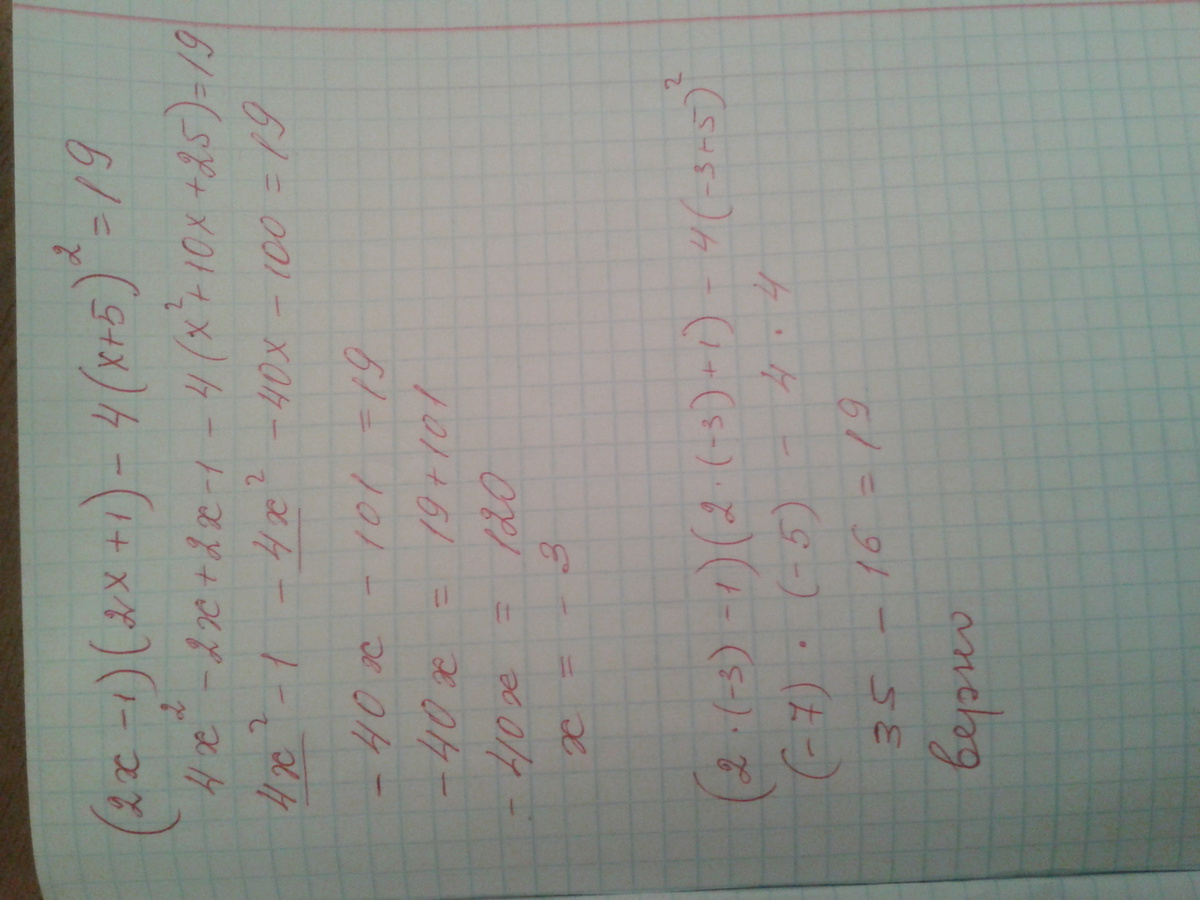 (2x-1)(2x+1)-4(x+5)²=19
4x²-2x+2x-1-4(x²+10x+25)=19
4x²-1-4x²-40x-100=19
-40x-101=19
-40x=19+101
-40x=120
x=-3
(2·(-3)-1)(2·(-3)+1)-4(-3+5)²
(-7)·(-5)-4·4
35-16=19
верно